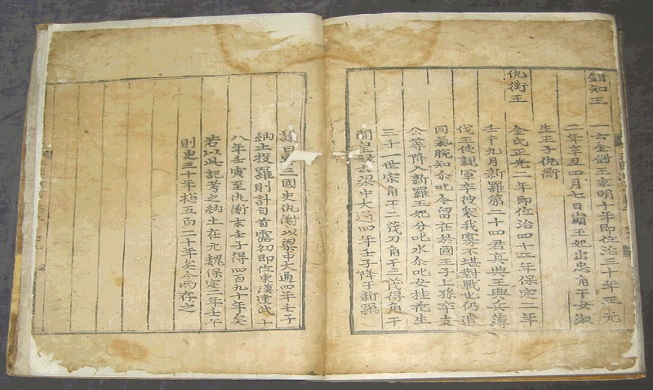 鉗知王
一云金鉗王永明十年即位治三十年正光
二年辛丑四月七日崩王妃出忠角干女淑
生王子仇衡
仇衡王
金氏正光二年即位治四十二年保定二年
壬午九月新羅第二十四君真興王興兵薄
伐王使親軍卒彼衆我寡不堪對戰也仍遣
同氣脫知尒叱今留在於國王子上孫卒支
公等降入新羅王妃分叱水尒叱女桂花生
三子一世宗角干二茂刀角干三茂得角干
開皇錄云梁中大通四年壬子降于新羅
議曰 三國史仇衡以梁中大通四年壬子
納土投羅則計自首露初即位東漢建武十
八年壬寅至仇衡末壬子得四百九十年矣
若以此記考之納土在元魏保定二年壬午
則更三十年揔五百二十年矣今兩存之